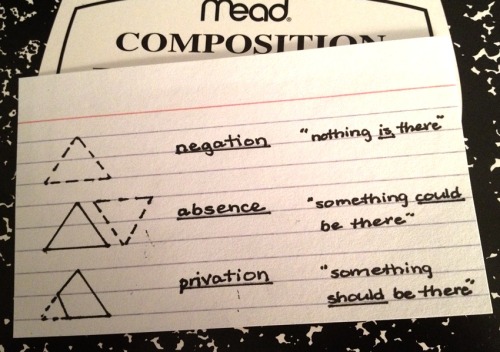 Mead
COMPOSITION
negation "nothing is there"
absence "something could
be there"
privation "something
should be there"